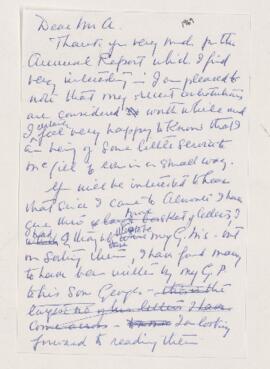 1967
Dear Mr A.
Thank you very much for the
Annual Report which I find
very interesting - I am pleased to
note that my recent contributions
are considered worth while and
I feel very happy to know that I
am being of some little service to
McGill to even in a small way.
You will be interested to hear
that since I came to I have
gone thro' a basket of letters,
I had thought they were my G.M's - but
on sorting them, I have found many
to have been written by my G.P.
to his Son George - this is the
largest no of his letters I have
come across - I am looking
forward to reading them